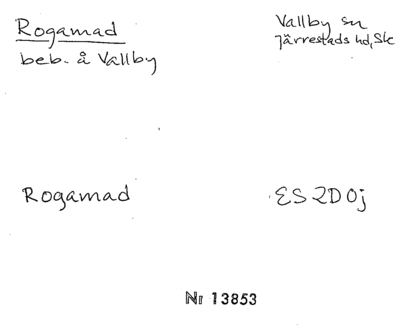 Rogamad
beb. å Vallby
Vallby sn
Järrestads hd, Sk
Rogamad
ES 2D0j
Nr 13853